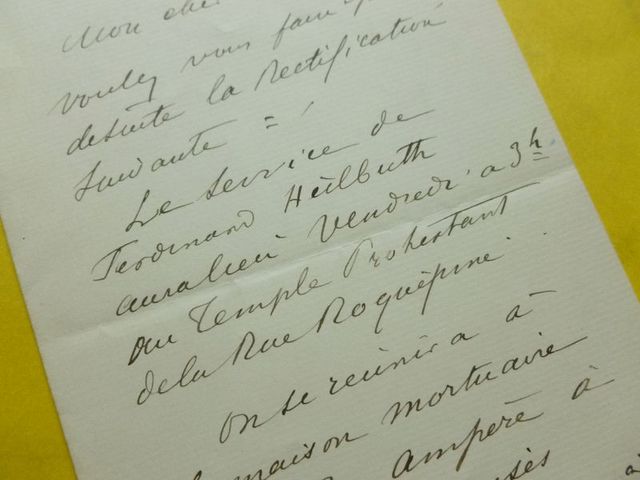 Mon cher
voulez vous faire
desuite la Rectification
Suivante =
Le Service de
Ferdinand Heilbuth
aura lieu Vendredi a 3h
au Temple Protestant
de la Rue Roquépine.
on se réunira à
maison mortuaire
Ampère à